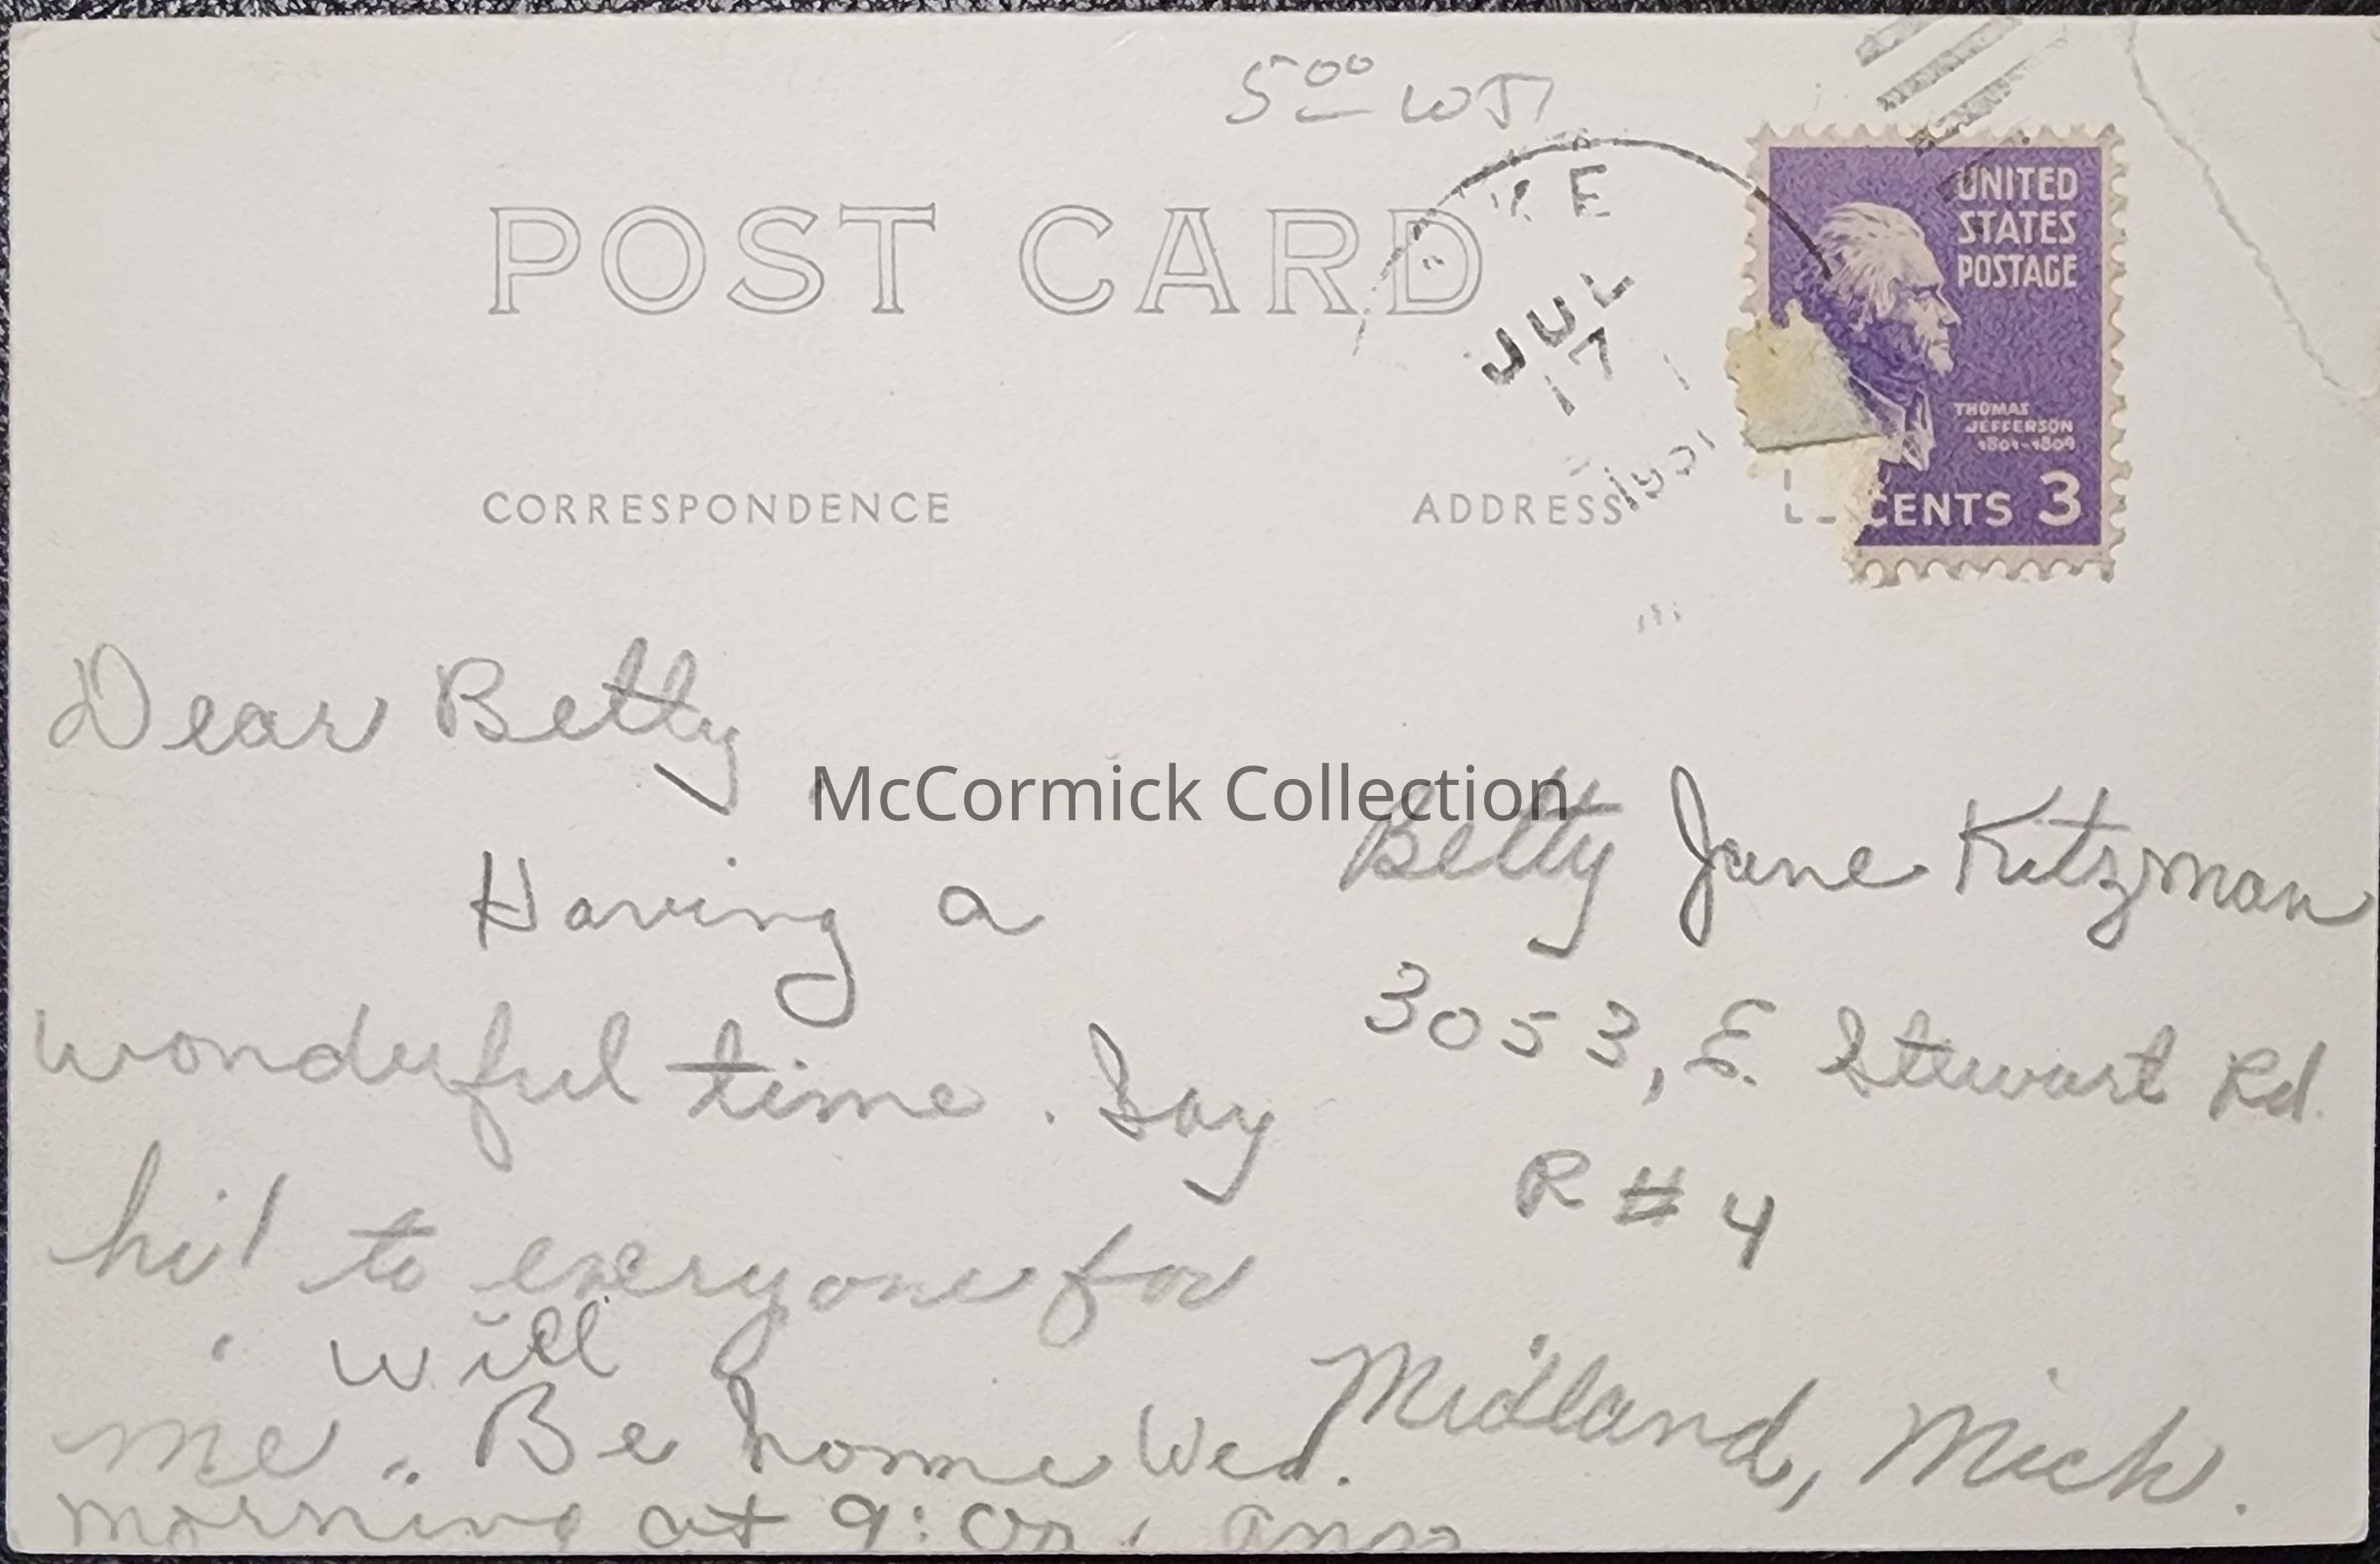 5 00 WJ
POST CARD
KE
JUL
17
UNITED
STATES
POSTAGE
THOMAS
JEFFERSON
1801-1809
CENTS 3
CORRESPONDENCE
ADDRESS
Dear Betty,
Having a
wonderful time. Say
hi! to everyone for
will
me. Be home Wed.
morning at 9:00.
McCormick Collection
Betty Jane Kitzman
3053, E. Stewart Rd.
R # 4
Midland, Mich.